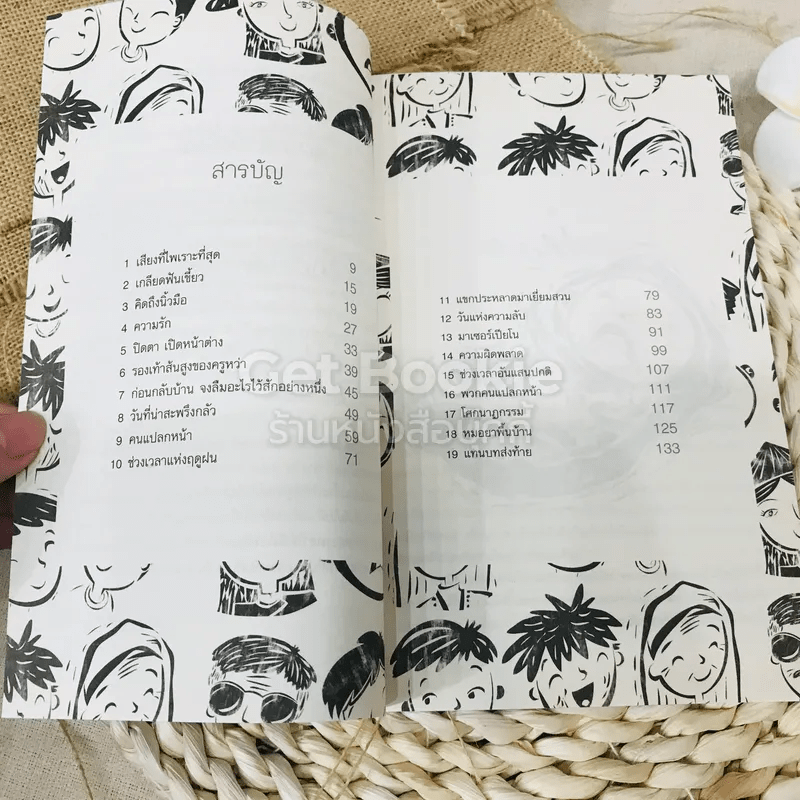 สารบัญ
1 เสียงที่ไพเราะที่สุด 9
2 เกลียดฟันเขี้ยว 15
3 คิดถึงนิ้วมือ 19
4 ความรัก 27
5 ปิดตา เปิดหน้าต่าง 33
6 รองเท้าส้นสูงของครูหว่า 39
7 ก่อนกลับบ้าน จงลืมอะไรไว้สักอย่างหนึ่ง 45
8 วันที่น่าสะพรึงกลัว 49
9 คนแปลกหน้า 59
10 ช่วงเวลาแห่งฤดูฝน 71
11 แขกประหลาดมาเยี่ยมสวน 79
12 วันแห่งความลับ 83
13 มาเซอร์เปียโน 91
14 ความผิดพลาด 99
15 ช่วงเวลาอันแสนปกติ 107
16 พวกคนแปลกหน้า 111
17 โศกนาฏกรรม 117
18 หมอยาพื้นบ้าน 125
19 แทนบทส่งท้าย 133
Get Bookie
ร้านหนังสือบุ๊คกี้